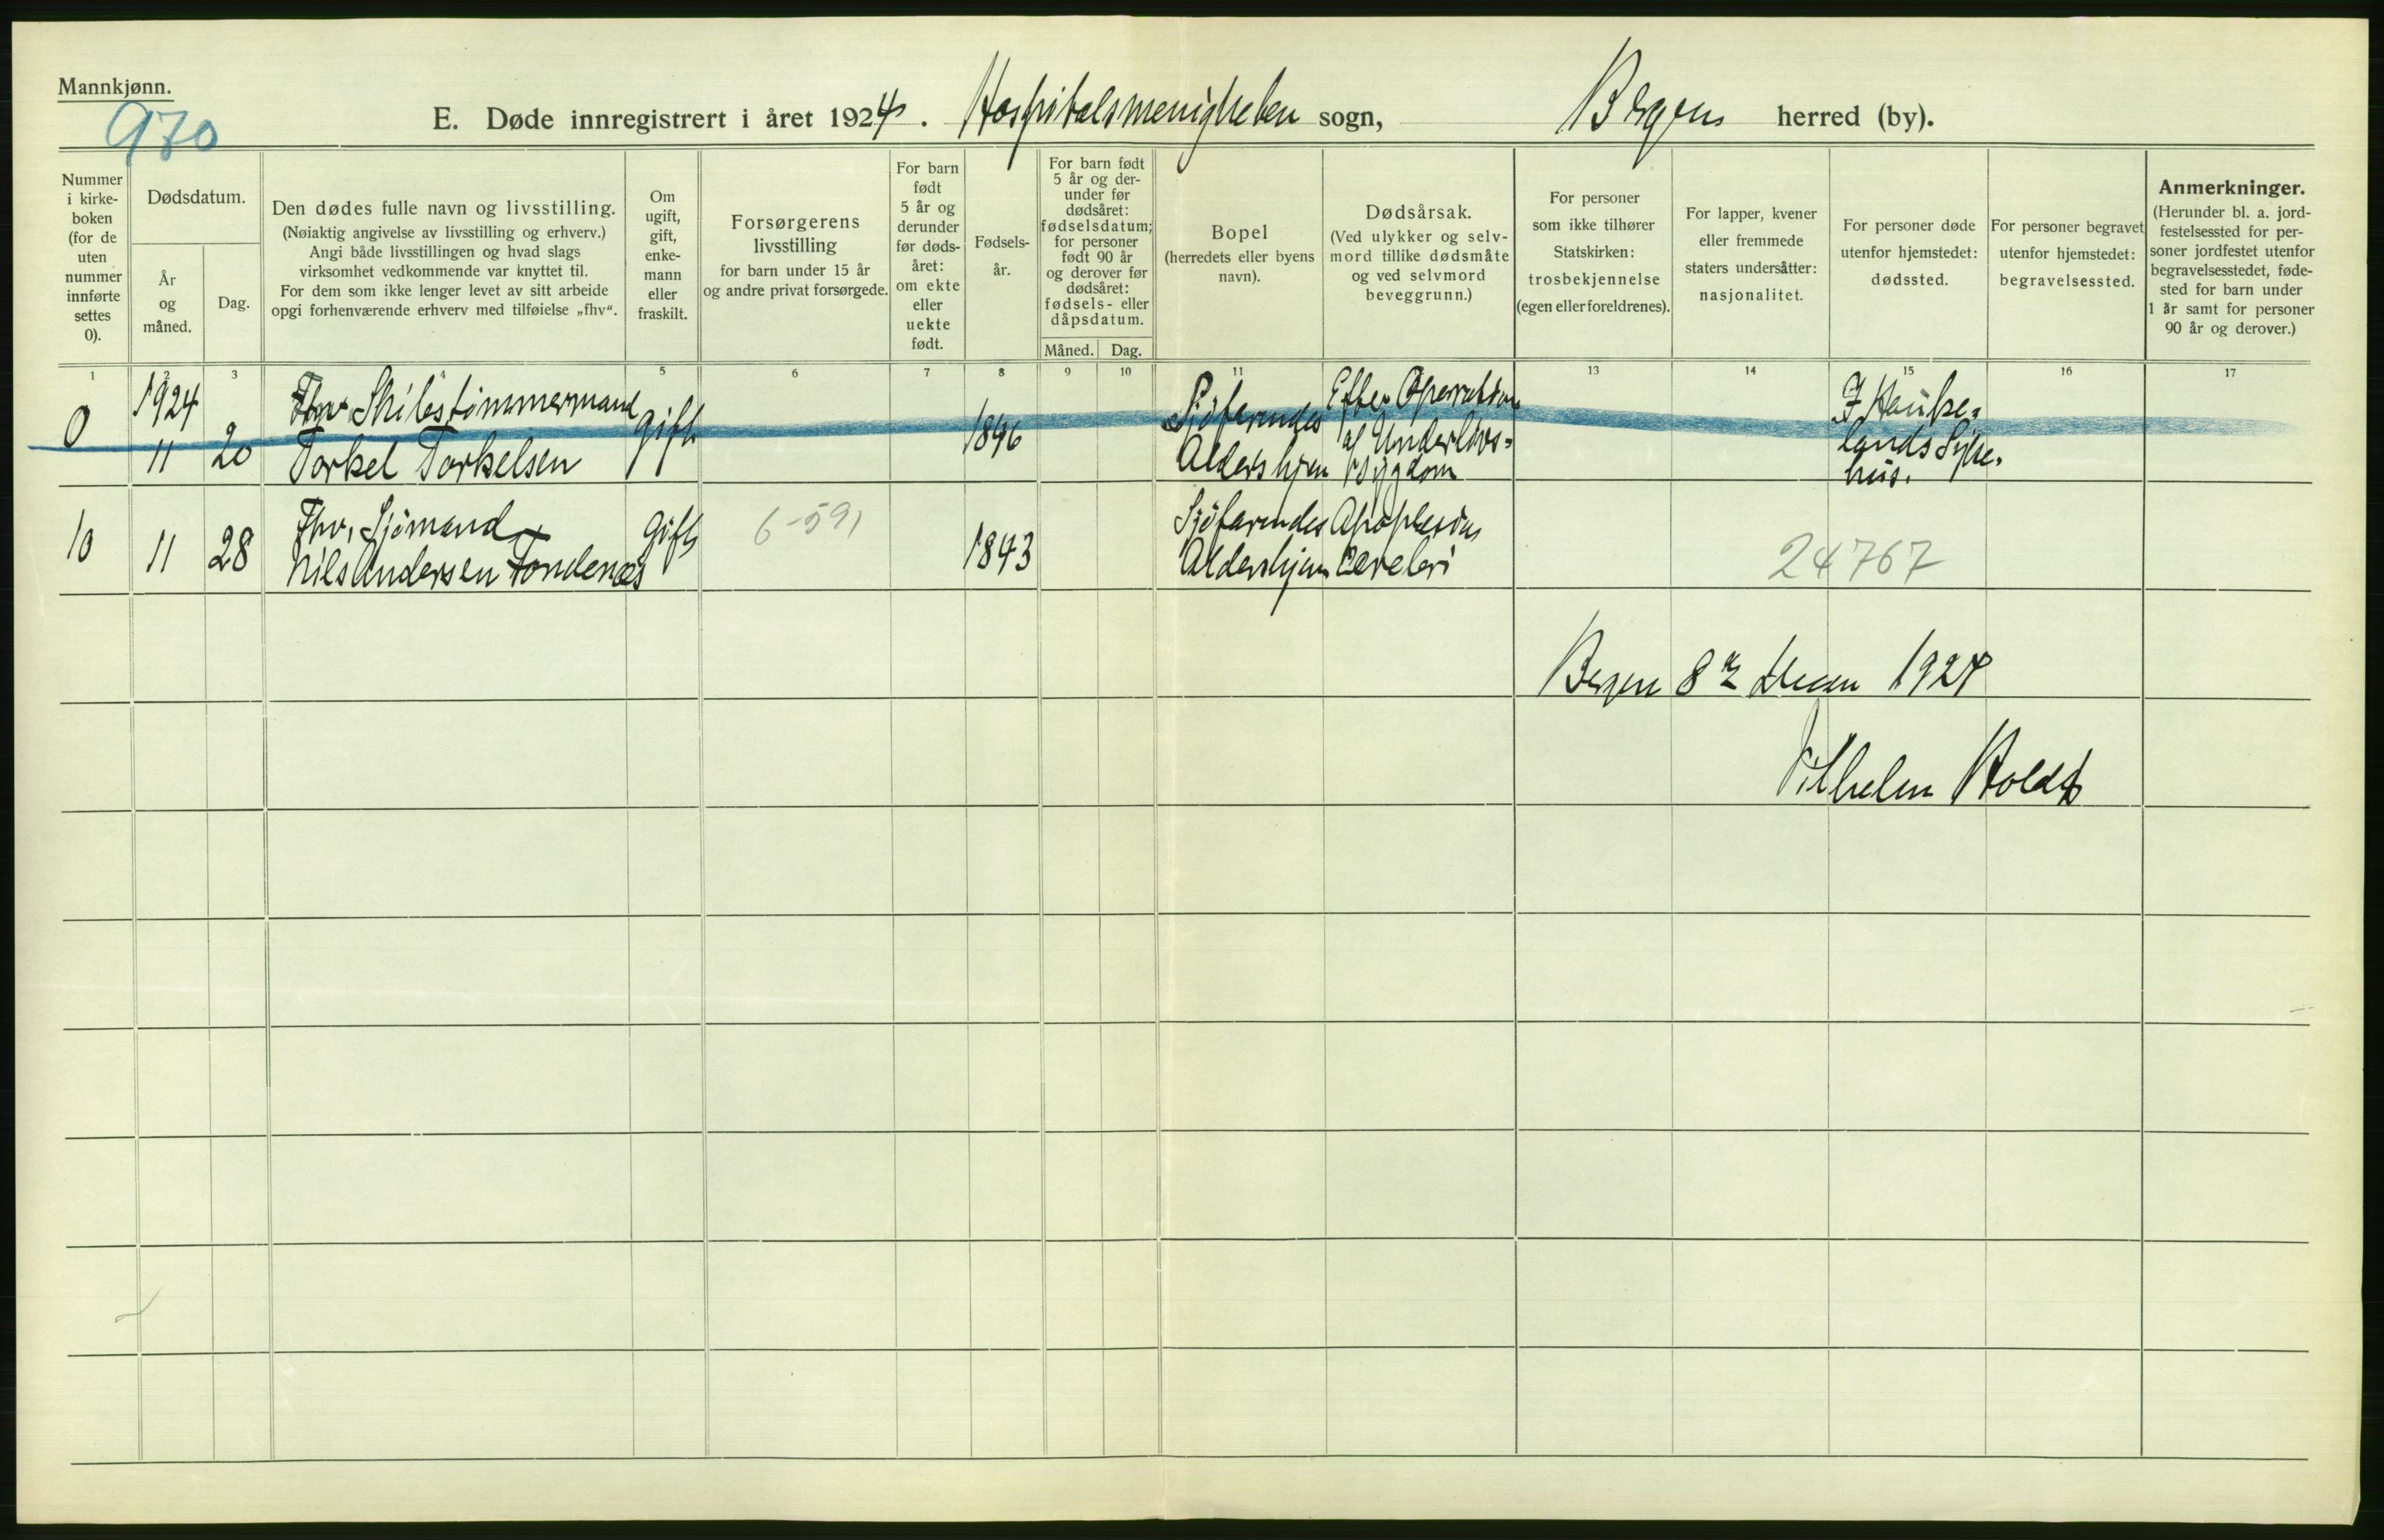 Mannkjønn.
970
E. Døde innregistrert i året 1924. Hospitalsmenigheten sogn, Bergen herred (by).
Nummer
i kirke-
boken
(for de
uten
nummer
innførte
settes
0).
Dødsdatum.
År
og
måned.
Dag.
Den dødes fulle navn og livsstilling.
(Nøiaktig angivelse av livsstilling og erhverv.)
Angi både livsstillingen og hvad slags
virksomhet vedkommende var knyttet til.
For dem som ikke lenger levet av sitt arbeide
opgi forhenværende erhverv med tilføielse „fhv“.
Om
ugift,
gift,
enke-
mann
eller
fraskilt.
Forsørgerens
livsstilling
for barn under 15 år
og andre privat forsørgede.
For barn
født
5 år og
derunder
før døds-
året:
om ekte
eller
uekte
født.
Fødsels-
år.
For barn født
5 år og der-
under før
dødsåret:
fødselsdatum;
for personer
født 90 år
og derover før
dødsåret:
fødsels- eller
dåpsdatum.
Måned. Dag.
Bopel
(herredets eller byens
navn).
Dødsårsak.
(Ved ulykker og selv-
mord tillike dødsmåte
og ved selvmord
beveggrunn.)
For personer
som ikke tilhører
Statskirken:
trosbekjennelse
(egen eller foreldrenes).
For lapper, kvener
eller fremmede
staters undersåtter:
nasjonalitet.
For personer døde
utenfor hjemstedet:
dødssted.
For personer begravet
utenfor hjemstedet:
begravelsessted.
Anmerkninger.
(Herunder bl. a. jord-
festelsessted for per-
soner jordfestet utenfor
begravelsesstedet, føde-
sted for barn under
1 år samt for personer
90 år og derover.)
1 2 3 4 5 6 7 8 9 10 11 13 14 15 16 17
0
1924
11
20
Fhv Skibstømmermand
Torkel Torkelsen
gift
1846
Sjøfarendes
Aldershjem
Efter Operation
af Underlivs-
sygdom
I Hauke-
lands Syke-
hus.
10
11
28
Fhv. Sjømand
Nils Andersen Tondenæs
gift
6-591
1843
Sjøfarendes
Aldershjem
Apoplexia
Cerebri
24767
Bergen 8 1924
Vilhelm Holdt